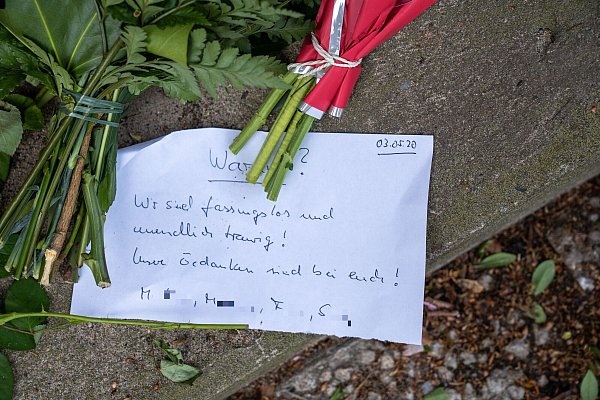 03.05.20
Warum?
Wir sind fassungslos und
unendlich traurig!
Unsere Gedanken sind bei euch!
M , M , F , S